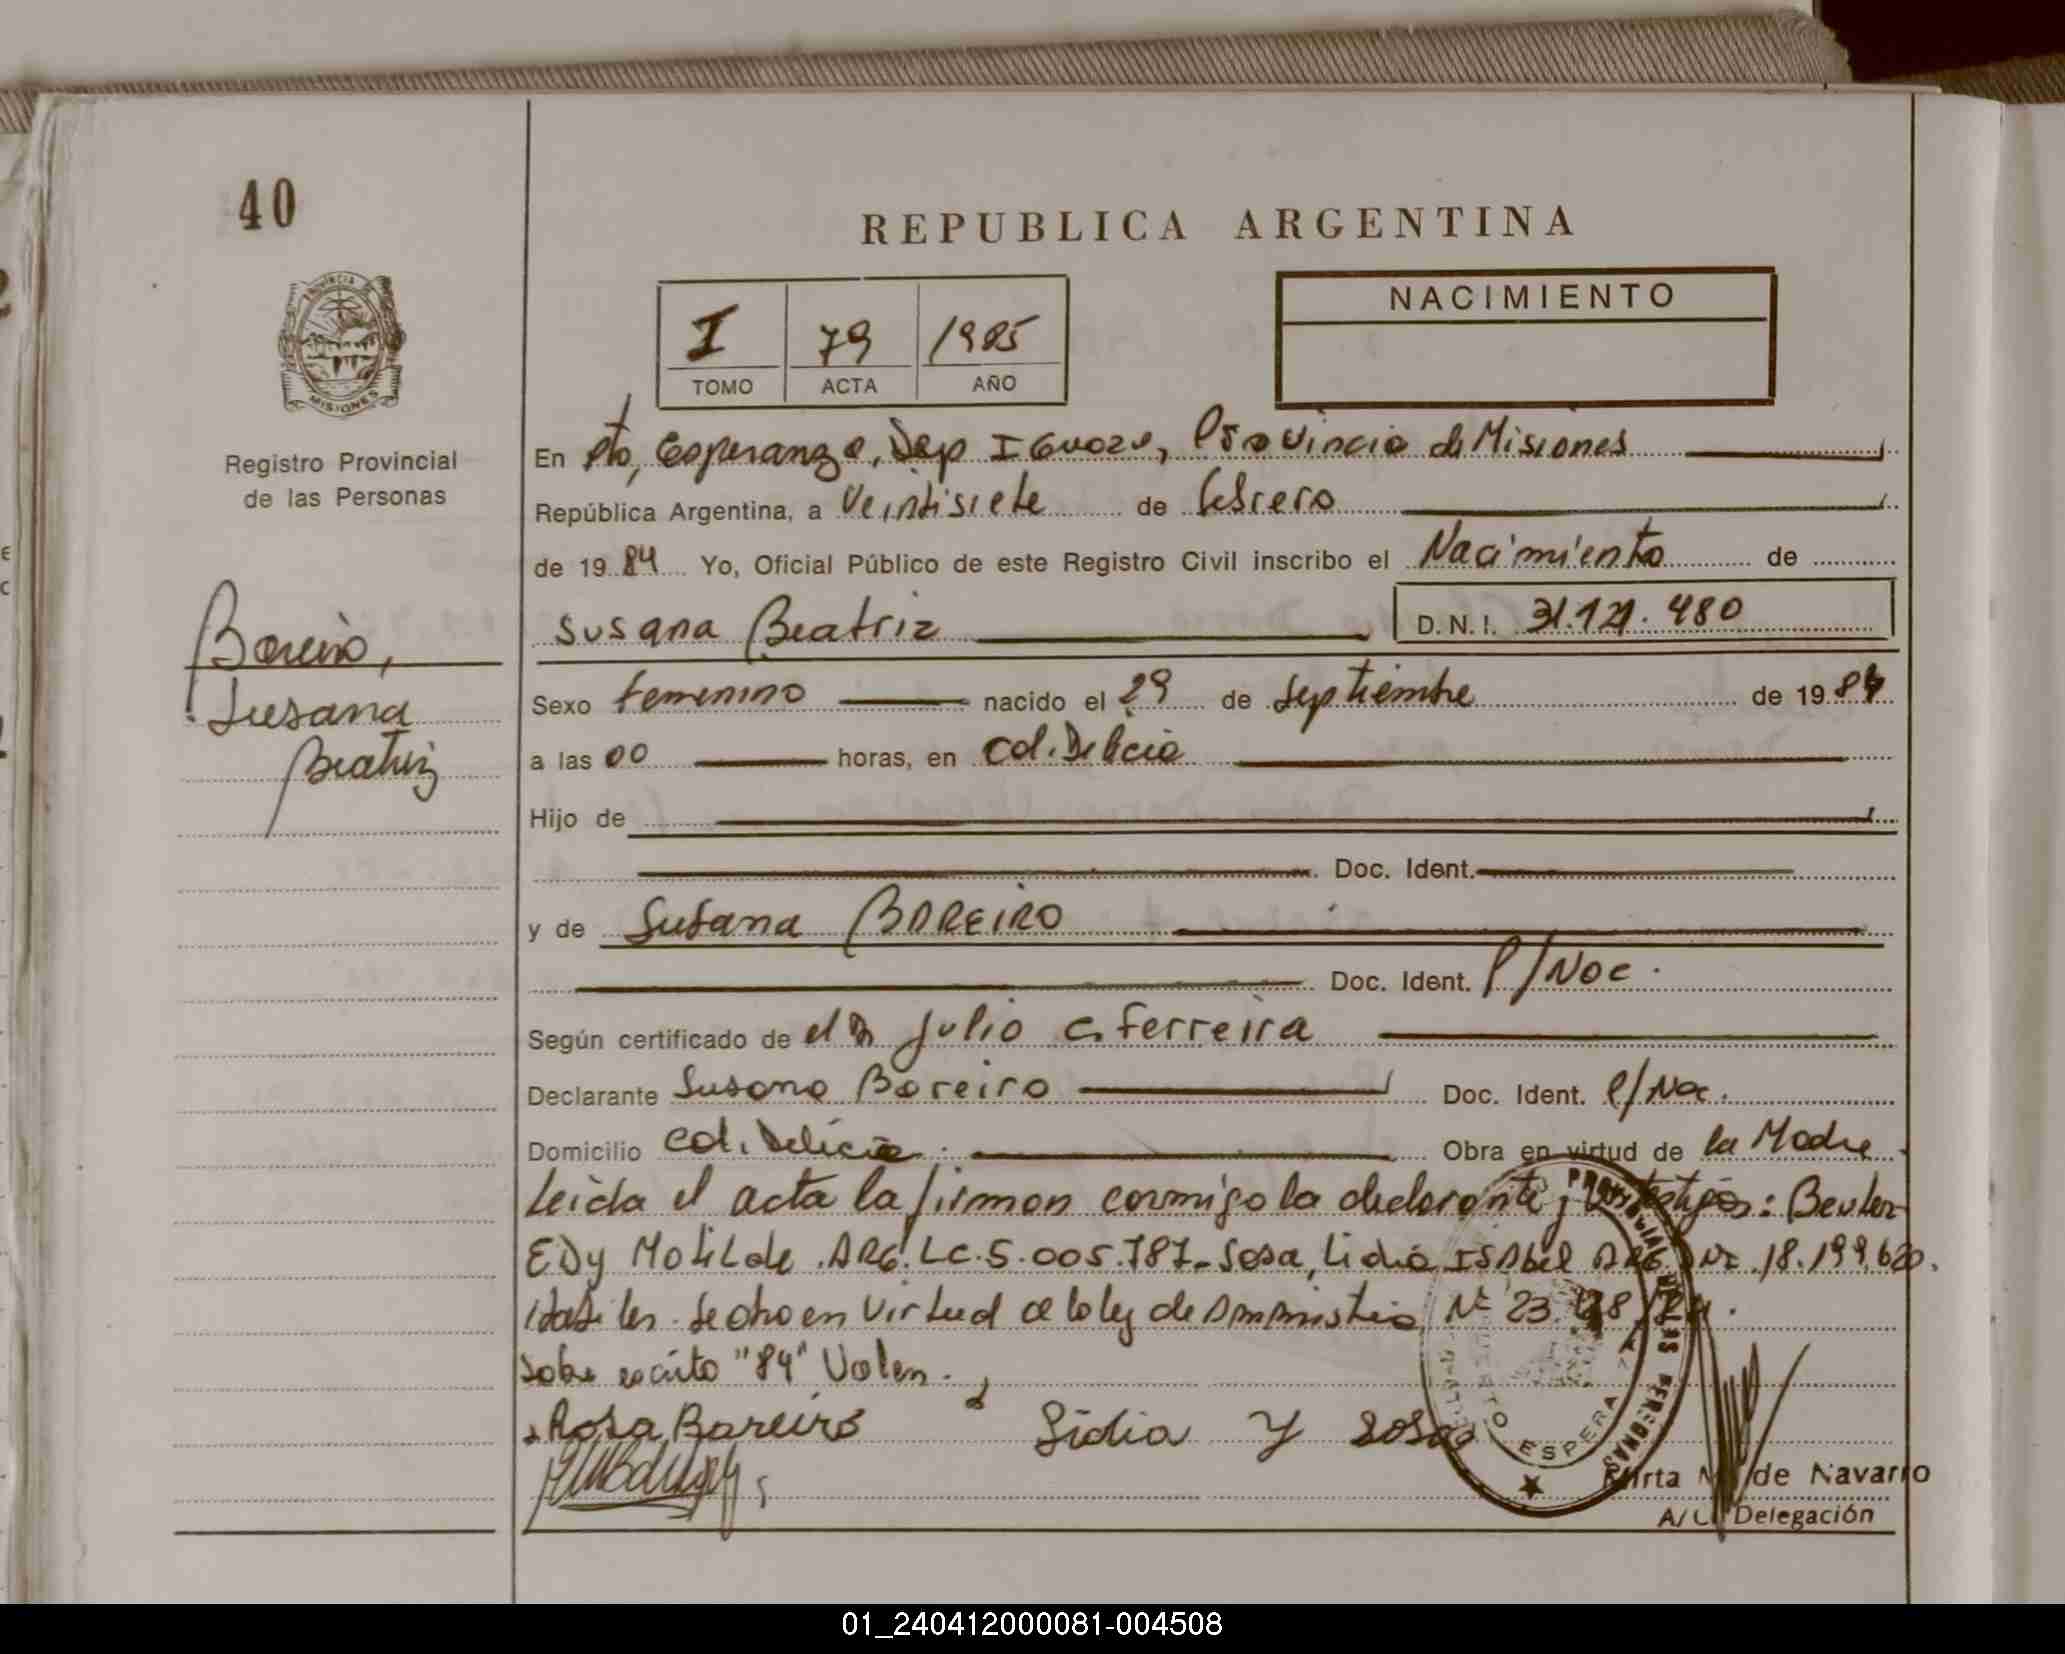 40
REPUBLICA ARGENTINA
PROVINCIA
MISIONES
I 79 1985
TOMO ACTA AÑO
NACIMIENTO
Registro Provincial
de las Personas
En Pto, Esperanza, Dep Iguazu, Provincia de Misiones
República Argentina, a Veintisiete de febrero
de 1984 Yo, Oficial Público de este Registro Civil inscribo el Nacimiento de
Susana Beatriz D.N.I. 31.121.480
Bareiro,
Susana
Beatriz
Sexo femenino nacido el 29 de Septiembre de 1984
a las 00 horas, en Col. Delicia
Hijo de
Doc. Ident.
y de Susana BAREIRO
Doc. Ident. P/Noc.
Según certificado de el Dr Julio C. Ferreira
Declarante Susana Bareiro Doc. Ident. P/Noc.
Domicilio Col. Delicia. Obra en virtud de la Madre
Leida el acta la firman conmigo la declarante y testigos: Beuler
EDy Matilde ARG. LC. 5.005.787- Sosa, Lidia ISAbel ARG DNI 18.199.620.
Se otro en Virtud de la ley de Amnistia Nº 23.
Sobre escrito "84" Valen.
Rosa Bareiro Lidia Y Sosa
PUERTO ESPERANZA
DE LAS PERSONAS
Mirta M. de Navarro
A/C Delegación
01_240412000081-004508